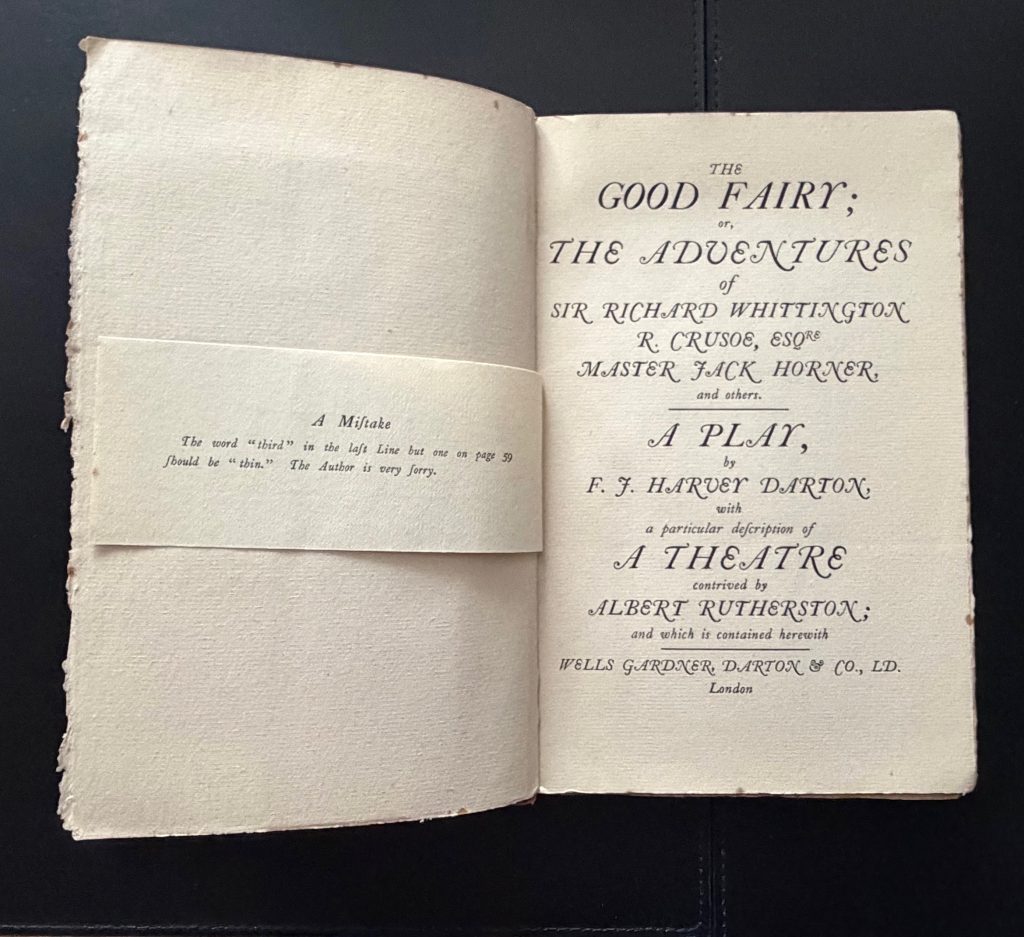 A Miſtake
The word "third" in the laſt Line but one on page 59
ſhould be "thin." The Author is very ſorry.
THE
GOOD FAIRY;
or,
THE ADVENTURES
of
SIR RICHARD WHITTINGTON
R. CRUSOE, ESQRE
MASTER JACK HORNER,
and others.
A PLAY,
by
F. J. HARVEY DARTON,
with
a particular deſcription of
A THEATRE
contrived by
ALBERT RUTHERSTON;
and which is contained herewith
WELLS GARDNER, DARTON & CO., LD.
London